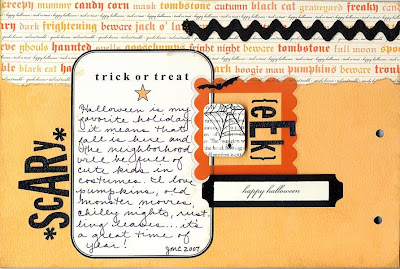 creepy mummy candy corn mask tombstone autumn black cat graveyard freaky
scary dark frightening beware jack o' lan
eve ghouls haunted fright night beware tombstone full moon
black cat boogie man pumpkins beware
trick or treat
Halloween is my
favorite holiday.
it means that
fall is here and
the neighborhood
will be full of
cute kids in
costumes. I love
pumpkins, old
monster movies,
chilly nights, rust
ling leaves...it's
a great time of
year!
JMC 2007
*SCARY*
{EEK}
happy halloween